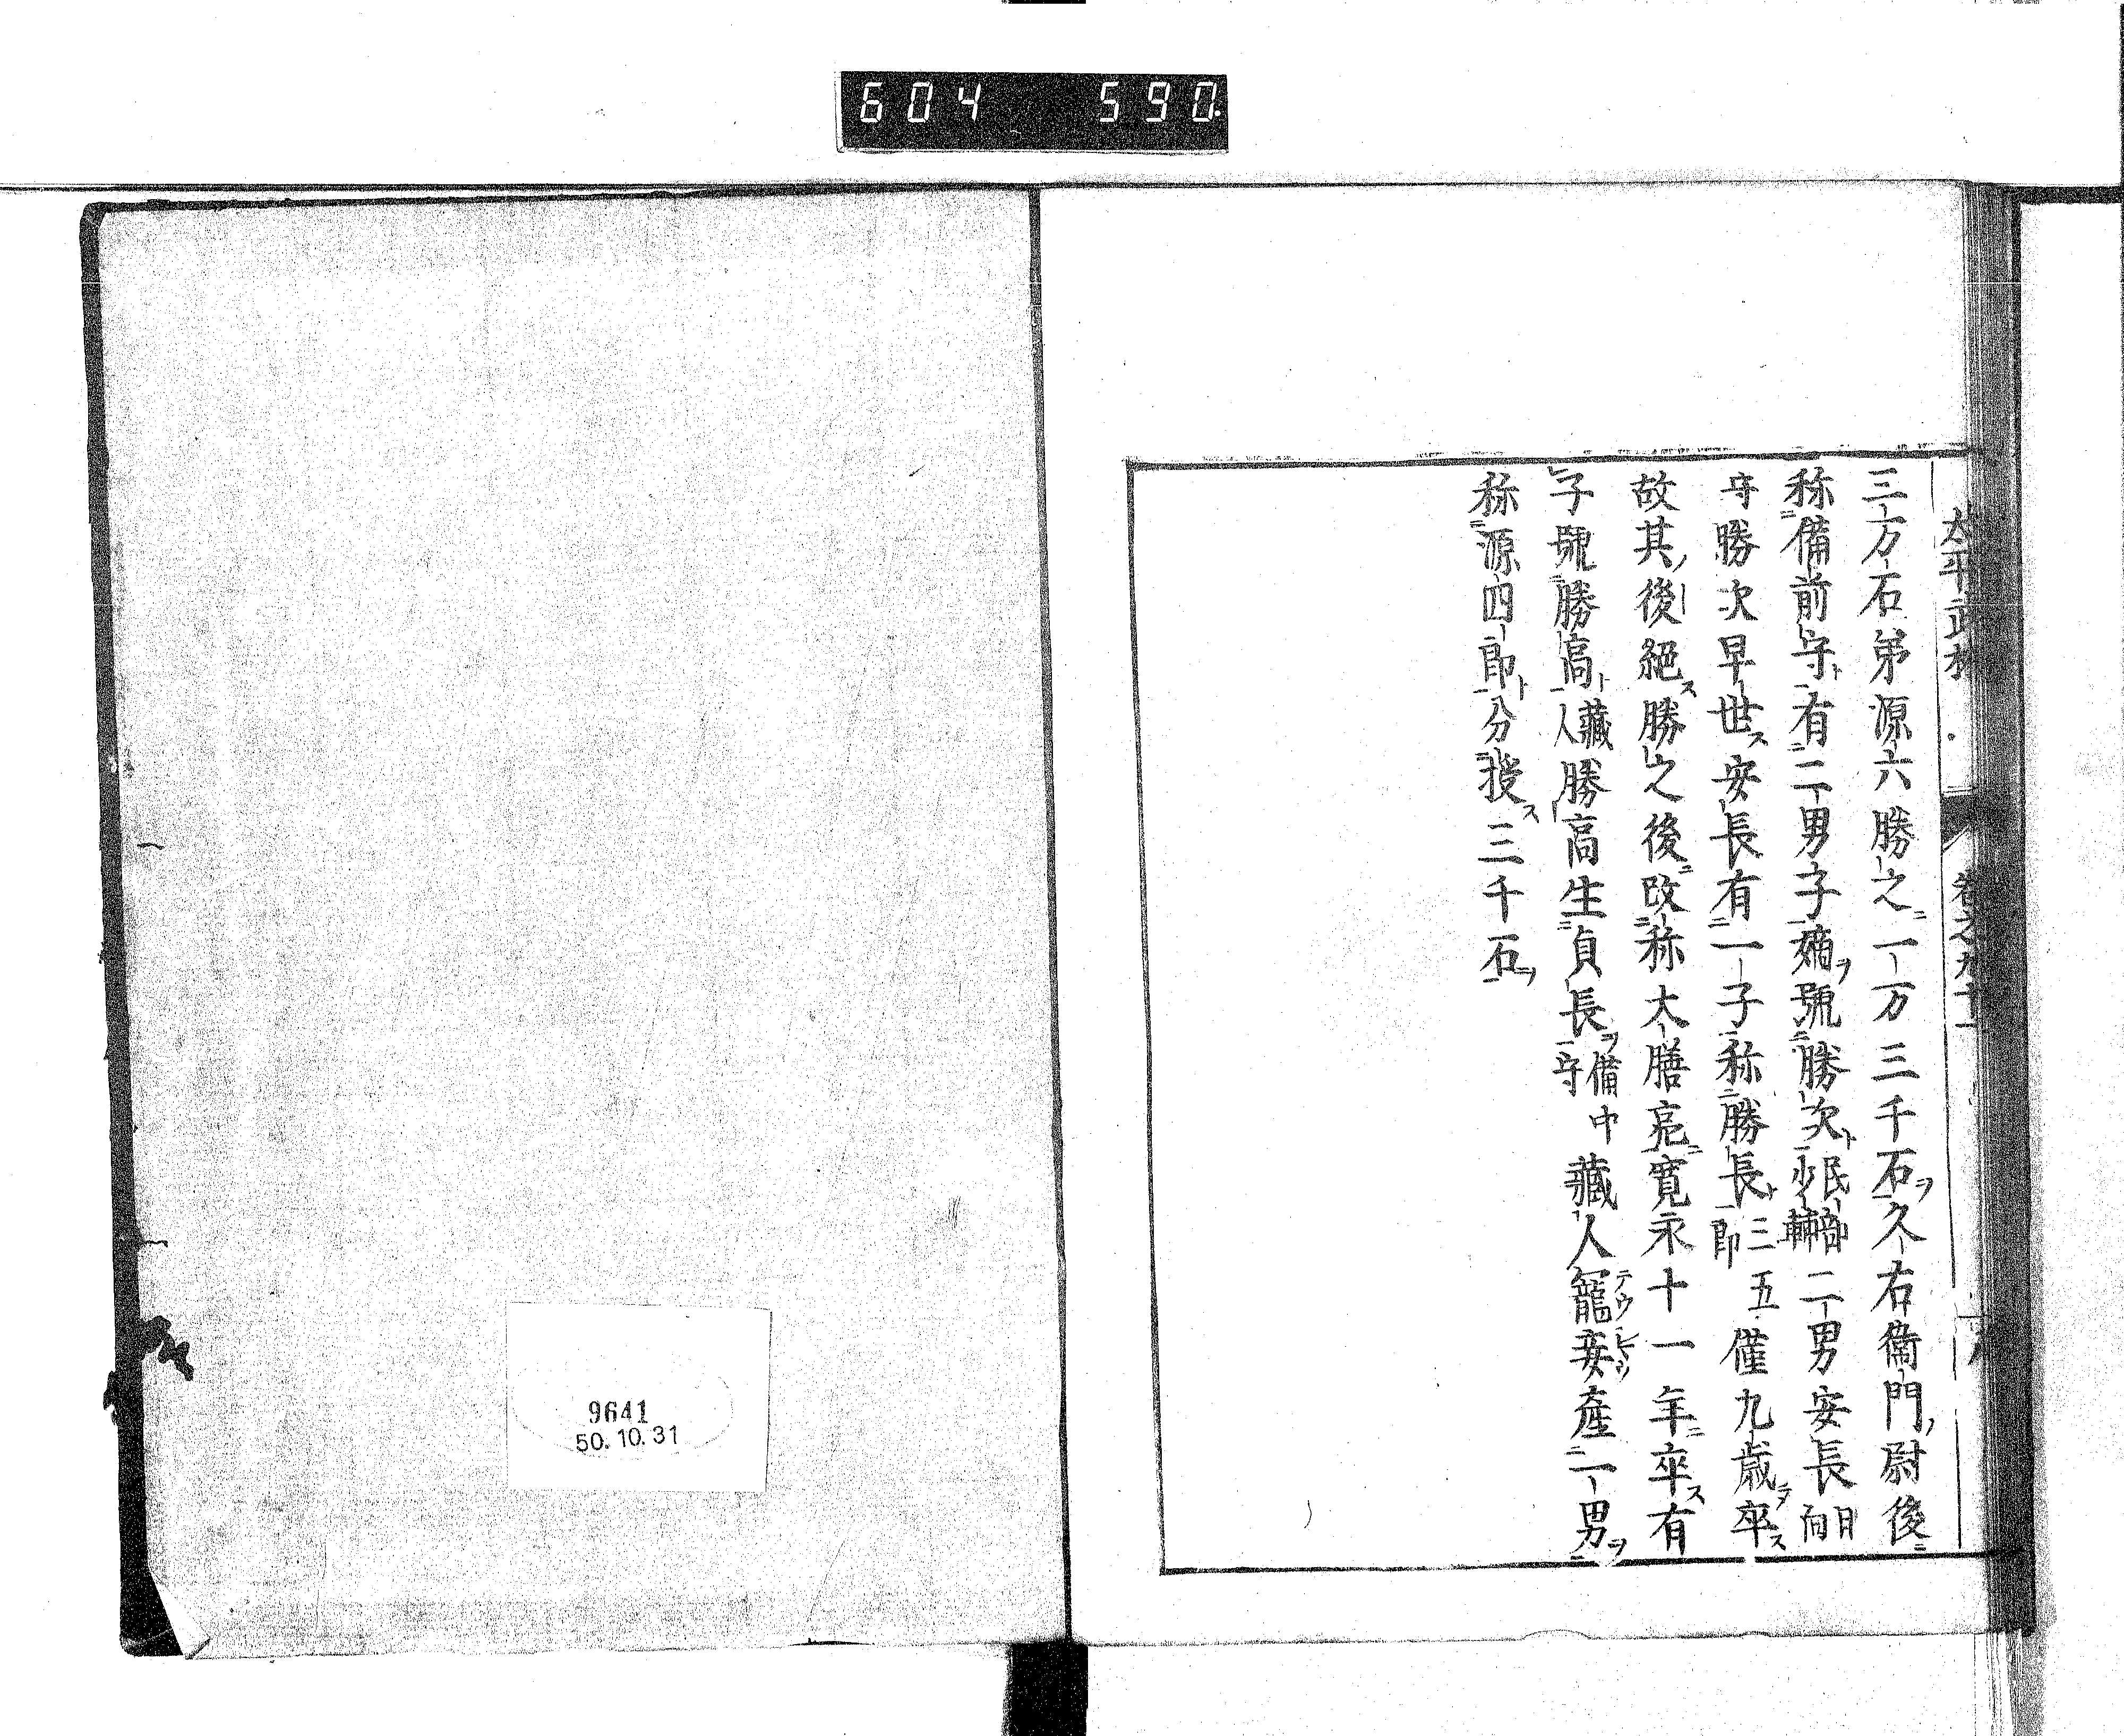 604 590
太平武林 卷之九十一
三万石弟源六勝之一万三千石久右衞門尉後
称備前守有二男子嫡號勝次民部少輔二男安長日向
守勝次早世安長有一子称勝長三五郎僅九歳卒
故其後絕勝之後改称大膳亮寛永十一年卒有
子號勝高藏人勝高生貞長備中守藏人寵妾產一男
称源四郎分授三千石
テウ セウ
9641
50.10.31